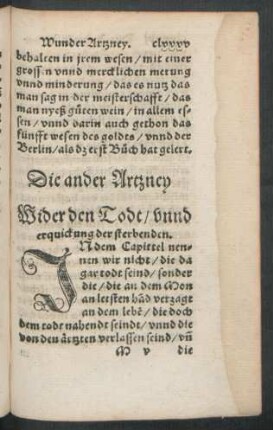 Wunder Artzney. clxxxv
behalten in jrem wesen / mit einer
grossen vnnd mercklichen merung
vnnd minderung / das es nutz das
man sag in der meisterschafft / das
man nyeß gůten wein / in allem es-
sen / vnnd darin auch gethon das
fünfft wesen des goldts / vnnd der
Berlin / als dz erst Bůch hat gelert.
Die ander Artzney
Wider den Todt / vnnd
erquickung der sterbenden.
IN dem Capittel nen-
nen wir nicht / die da
gar todt seind / sonder
die / die an dem Mon
an letsten hãd verzagt
an dem lebẽ / die doch
dem tode nahendt seindt / vnnd die
von den ärtzten verlassen seind / vñ
M v die